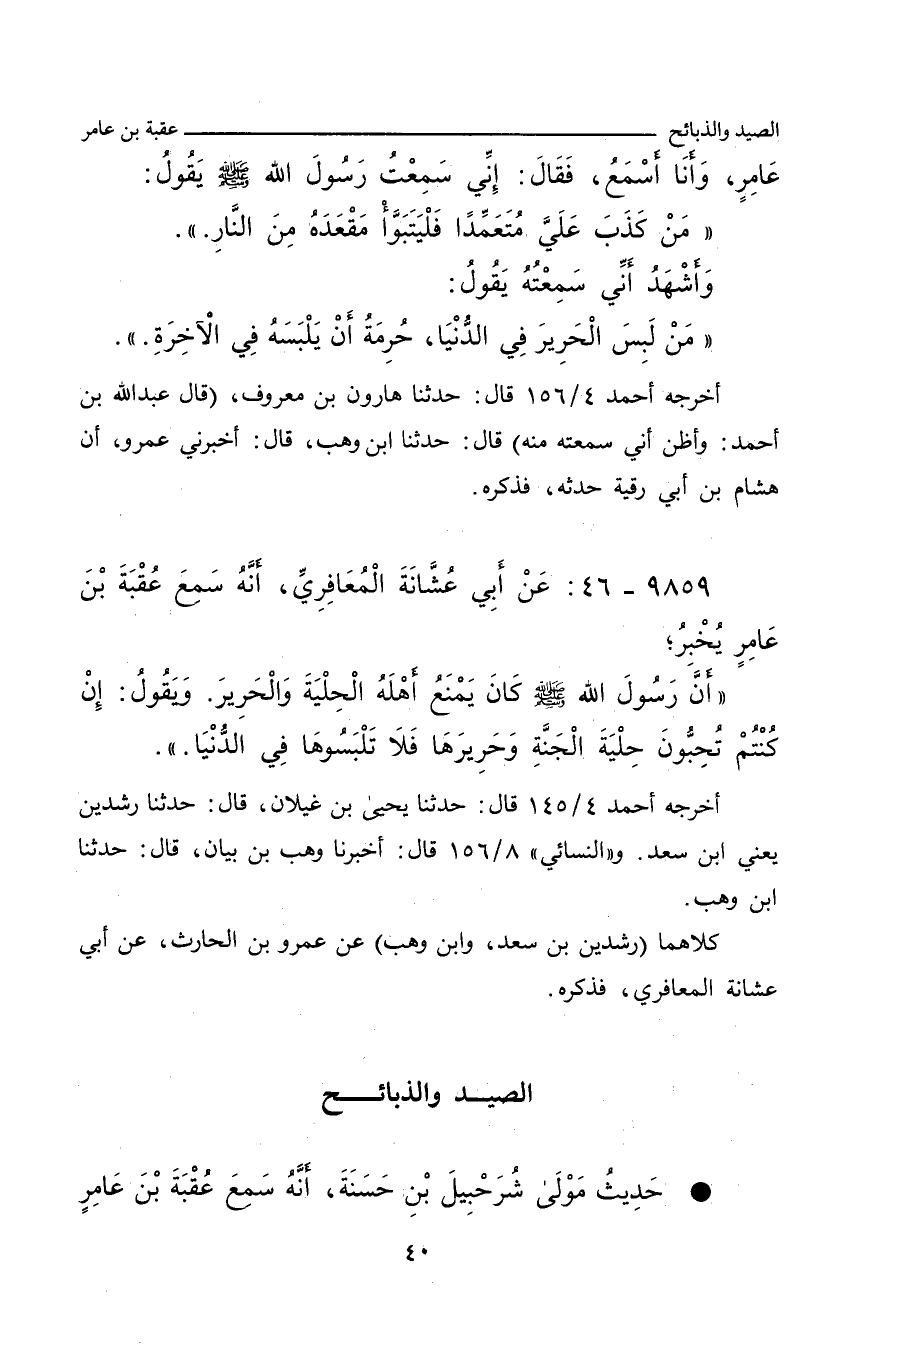 الصيد والذبائح ـــــــــــــــــ عقبة بن عامر
عَامِرٍ، وَأَنَا أَسْمَعُ، فَقَالَ: إِنِّي سَمِعْتُ رَسُولَ الله ﷺ يَقُولُ:
« مَنْ كَذَبَ عَلَيَّ مُتَعَمِّدًا فَلْيَتَبَوَّأْ مَقْعَدَهُ مِنَ النَّارِ.».
وَأَشْهَدُ أَنِّي سَمِعْتُهُ يَقُولُ:
« مَنْ لَبِسَ الْحَرِيرَ فِي الدُّنْيَا، حُرِمَهُ أَنْ يَلْبَسَهُ فِي الْآخِرَةِ.».
أخرجه أحمد ١٥٦/٤ قال: حدثنا هارون بن معروف، (قال عبدالله بن
أحمد: وأظن أني سمعته منه) قال: حدثنا ابن وهب، قال: أخبرني عمرو، أن
هشام بن أبي رقية حدثه، فذكره.
٩٨٥٩ - ٤٦: عَنْ أَبِي عُشَّانَةَ الْمُعَافِرِيِّ، أَنَّهُ سَمِعَ عُقْبَةَ بْنَ
عَامِرٍ يُخْبِرُ؛
«أَنَّ رَسُولَ الله ﷺ كَانَ يَمْنَعُ أَهْلَهُ الْحِلْيَةَ وَالْحَرِيرَ. وَيَقُولُ: إِنْ
كُنْتُمْ تُحِبُّونَ حِلْيَةَ الْجَنَّةِ وَحَرِيرَهَا فَلَا تَلْبَسُوهَا فِي الدُّنْيَا.».
أخرجه أحمد ١٤٥/٤ قال: حدثنا يحيىٰ بن غيلان، قال: حدثنا رشدين
يعني ابن سعد. و«النسائي» ١٥٦/٨ قال: أخبرنا وهب بن بيان، قال: حدثنا
ابن وهب.
كلاهما (رشدين بن سعد، وابن وهب) عن عمرو بن الحارث، عن أبي
عشانة المعافري، فذكره.
الصيـــد والذبائـــح
● حَدِيثُ مَوْلَىٰ شُرَحْبِيلَ بْنِ حَسَنَةَ، أَنَّهُ سَمِعَ عُقْبَةَ بْنَ عَامِرٍ
٤٠